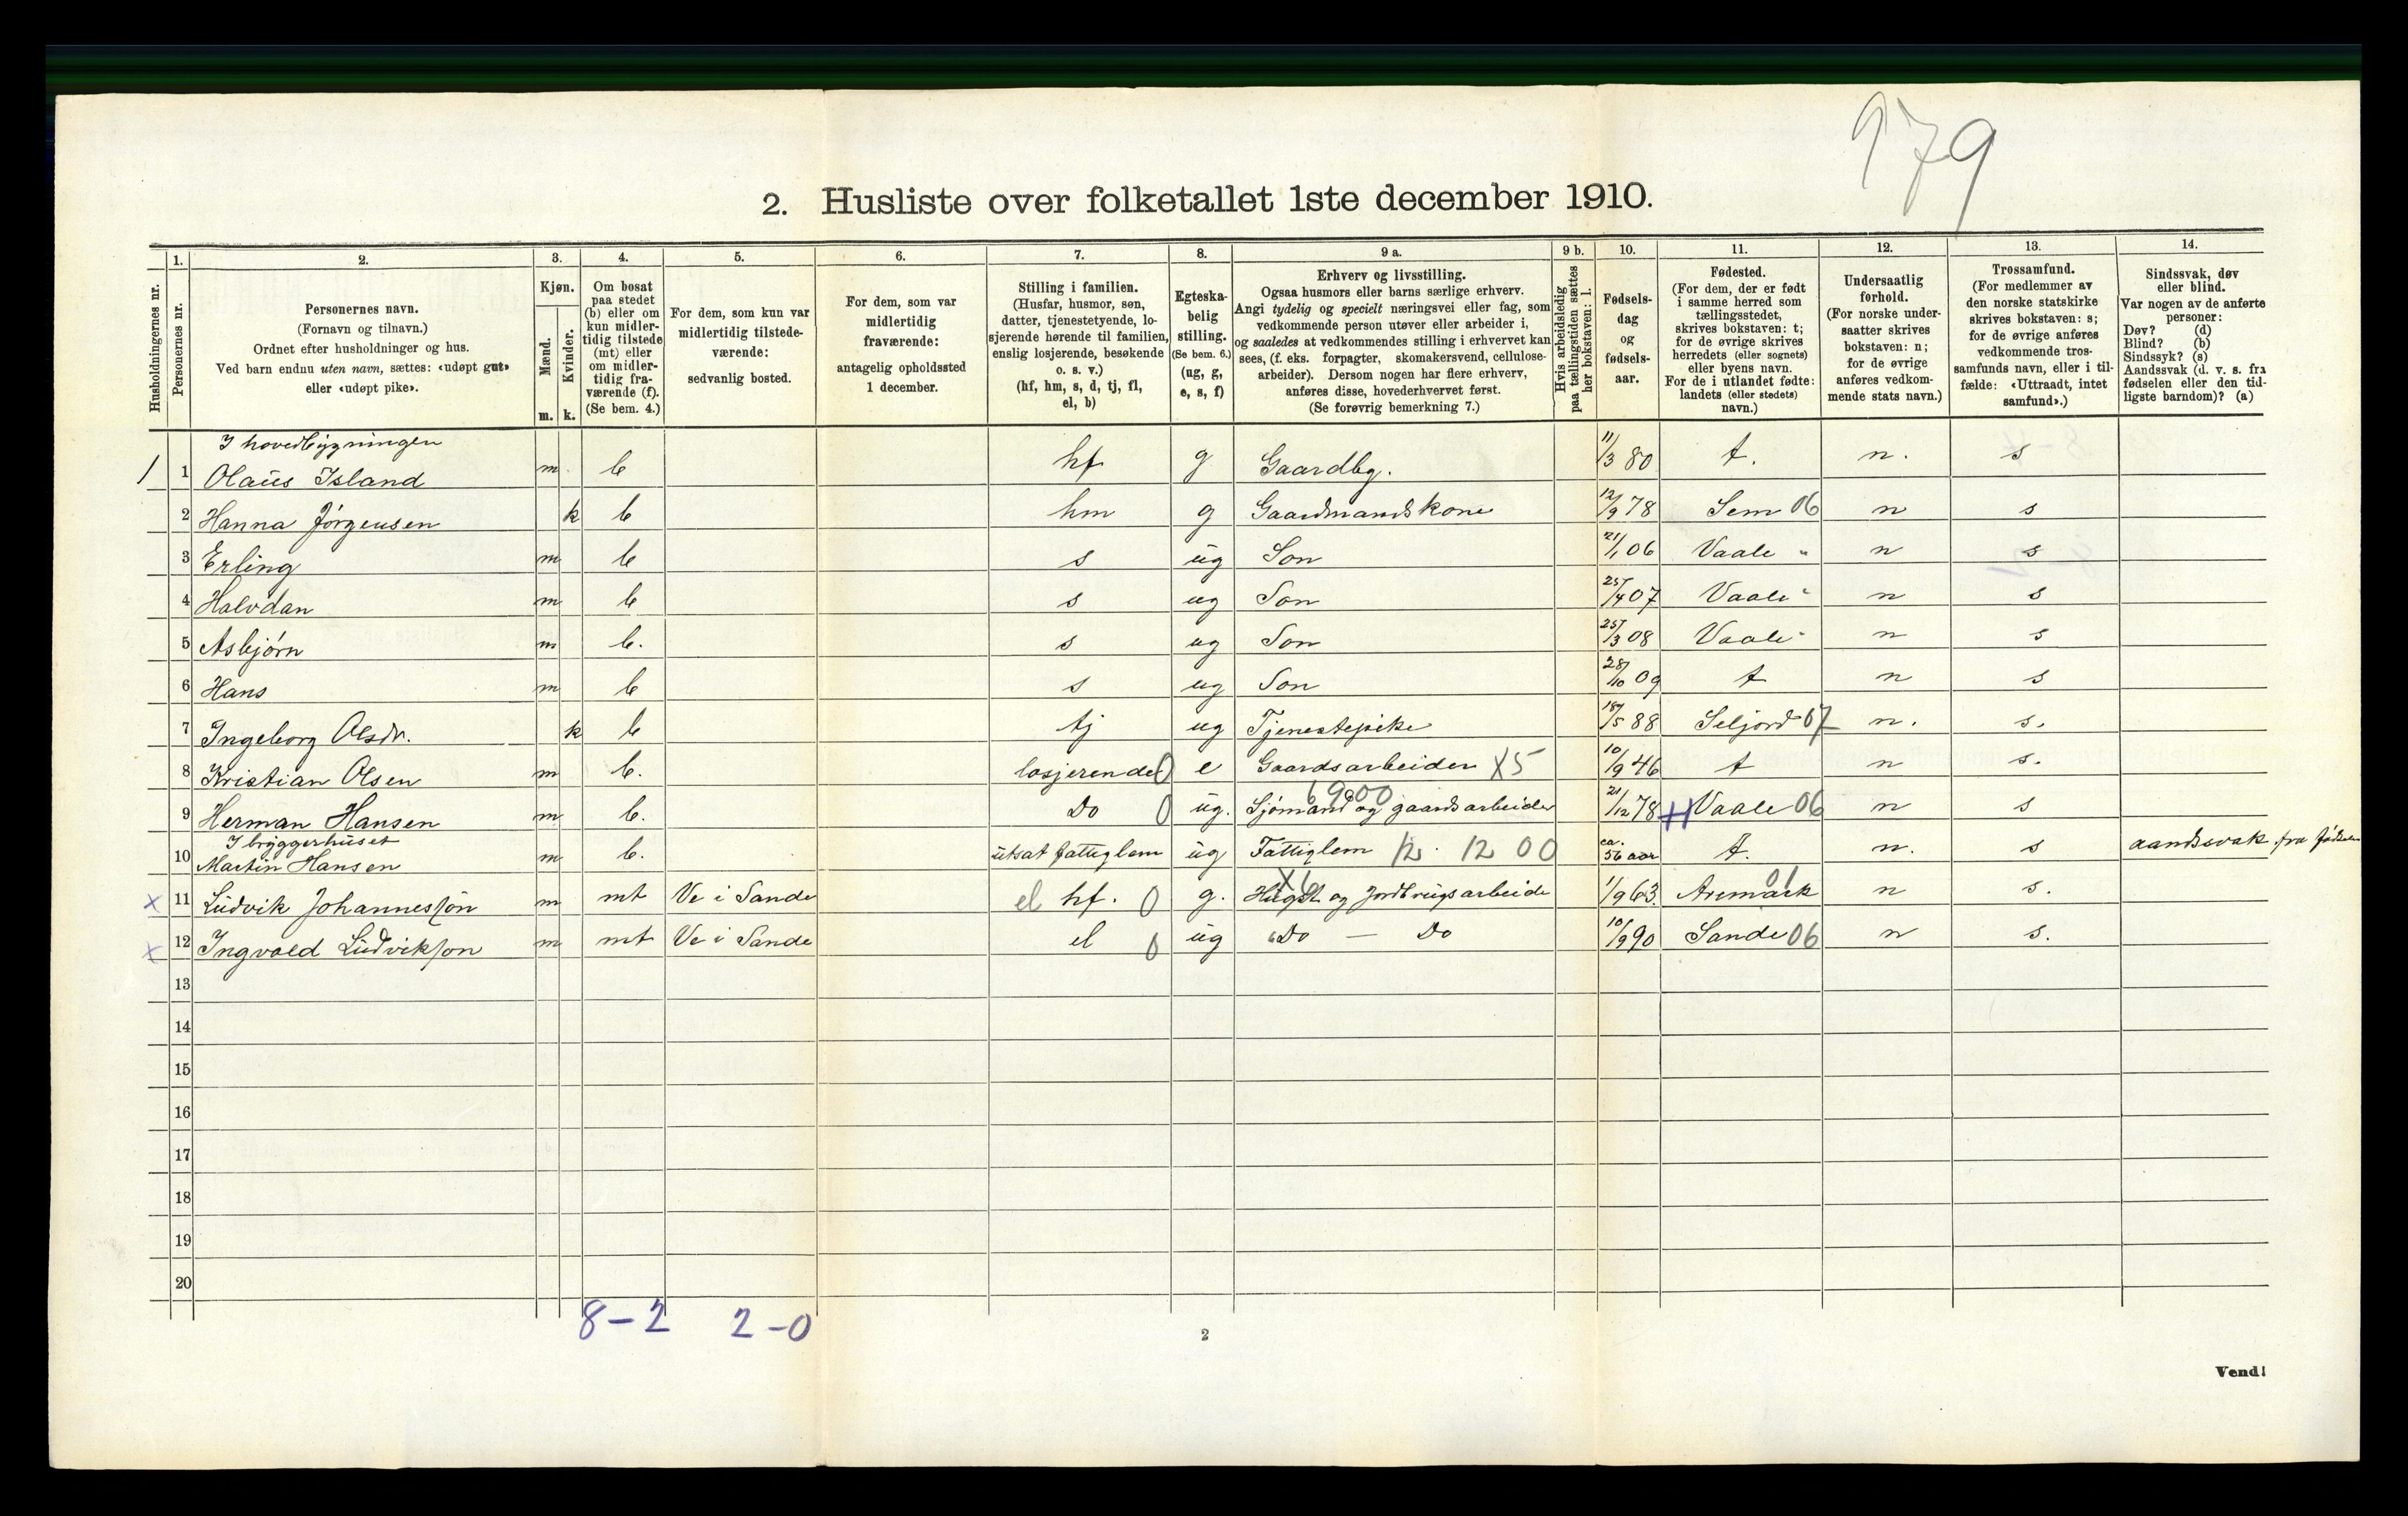 179
2. Husliste over folketallet 1ste december 1910.
Husholdningernes nr.
1. Personernes nr.
2. Personernes navn.
(Fornavn og tilnavn.)
Ordnet efter husholdninger og hus.
Ved barn endnu uten navn, sættes: «udøpt gut»
eller «udøpt pike».
3. Kjøn.
Mænd. m.
Kvinder. k.
4. Om bosat
paa stedet
(b) eller om
kun midler-
tidig tilstede
(mt) eller
om midler-
tidig fra-
værende (f).
(Se bem. 4.)
5. For dem, som kun var
midlertidig tilstede-
værende:
sedvanlig bosted.
6. For dem, som var
midlertidig
fraværende:
antagelig opholdssted
1 december.
7. Stilling i familien.
(Husfar, husmor, søn,
datter, tjenestetyende, lo-
sjerende hørende til familien,
enslig losjerende, besøkende
o. s. v.)
(hf, hm, s, d, tj, fl,
el, b)
8. Egteska-
belig
stilling.
(Se bem. 6.)
(ug, g,
e, s, f)
9 a. Erhverv og livsstilling.
Ogsaa husmors eller barns særlige erhverv.
Angi tydelig og specielt næringsvei eller fag, som
vedkommende person utøver eller arbeider i,
og saaledes at vedkommendes stilling i erhvervet kan
sees, (f. eks. forpagter, skomakersvend, cellulose-
arbeider). Dersom nogen har flere erhverv,
anføres disse, hovederhvervet først.
(Se forøvrig bemerkning 7.)
9 b. Hvis arbeidsledig
paa tællingstiden sættes
her bokstaven: l.
10. Fødsels-
dag
og
fødsels-
aar.
11. Fødested.
(For dem, der er født
i samme herred som
tællingsstedet,
skrives bokstaven: t;
for de øvrige skrives
herredets (eller sognets)
eller byens navn.
For de i utlandet fødte:
landets (eller stedets)
navn.)
12. Undersaatlig
forhold.
(For norske under-
saatter skrives
bokstaven: n;
for de øvrige
anføres vedkom-
mende stats navn.)
13. Trossamfund.
(For medlemmer av
den norske statskirke
skrives bokstaven: s;
for de øvrige anføres
vedkommende tros-
samfunds navn, eller i til-
fælde: «Uttraadt, intet
samfund».)
14. Sindssvak, døv
eller blind.
Var nogen av de anførte
personer:
Døv? (d)
Blind? (b)
Sindssyk? (s)
Aandssvak (d. v. s. fra
fødselen eller den tid-
ligste barndom)? (a)
I hovedbygningen
1 1 Olaüs Island m. b hf g Gaardbg. 11/3 80 t. n. s
2 Hanna Jörgensen k b hm g Gaardmandskone 12/9 78 Sem 06 n s
3 Erling m b s ug Son 21/1 06 Vaale " n s
4 Halvdan m b s ug Son 25/4 07 Vaale " n s
5 Asbjørn m b. s ug Son 25/3 08 Vaale " n s
6 Hans m b s ug Son 28/10 09 t n s
7 Ingeborg Olsdr. k b tj ug Tjenestepike 18/5 88 Seljord 07 n. s.
8 Kristian Olsen m b. losjerende 0 e Gaardsarbeider X5 10/9 46 t n s.
6900
9 Herman Hansen m b. Do 0 ug. Sjömand og gaardsarbeider 21/12 78 Vaale 06 n s
I bryggerhuset
10 Martin Hansen m b. utsat fattiglem ug Fattiglem 12. 12 00 ca. 56 aar t. n. s aandssvak fra fødselen
X 11 Ludvik Johannesson m mt Ve i Sande el hf. 0 g. Hugst og Jordbrugsarbeide X6 1/9 63. Aremark 01 n s.
X 12 Ingvald Ludvikson m mt Ve i Sande el 0 ug Do — Do 10/9 90 Sande 06 n s.
13
14
15
16
17
18
19
20
8-2 2-0
2
Vend!